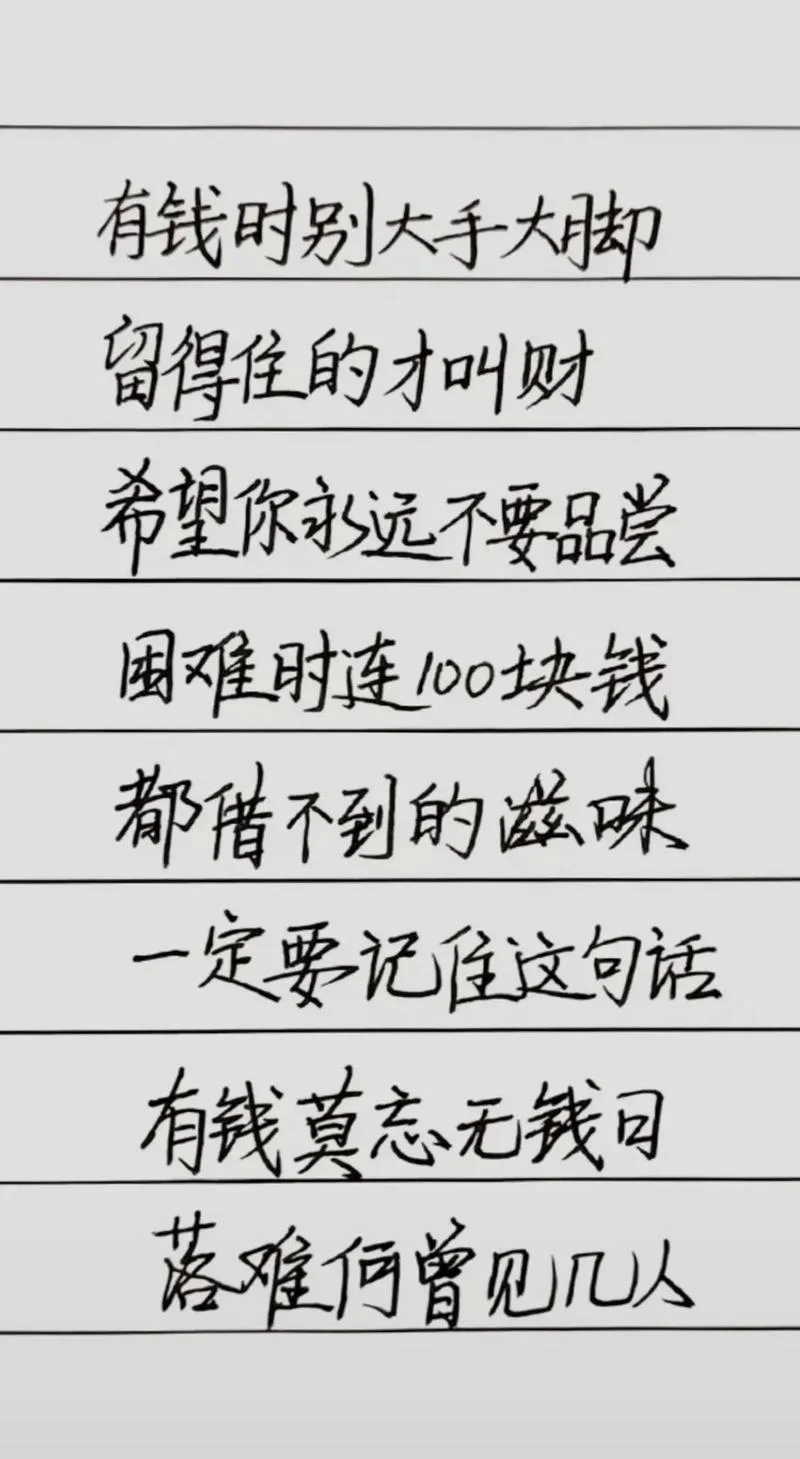 有钱时别大手大脚
留得住的才叫财
希望你永远不要品尝
困难时连100块钱
都借不到的滋味
一定要记住这句话
有钱莫忘无钱日
落难何曾见几人